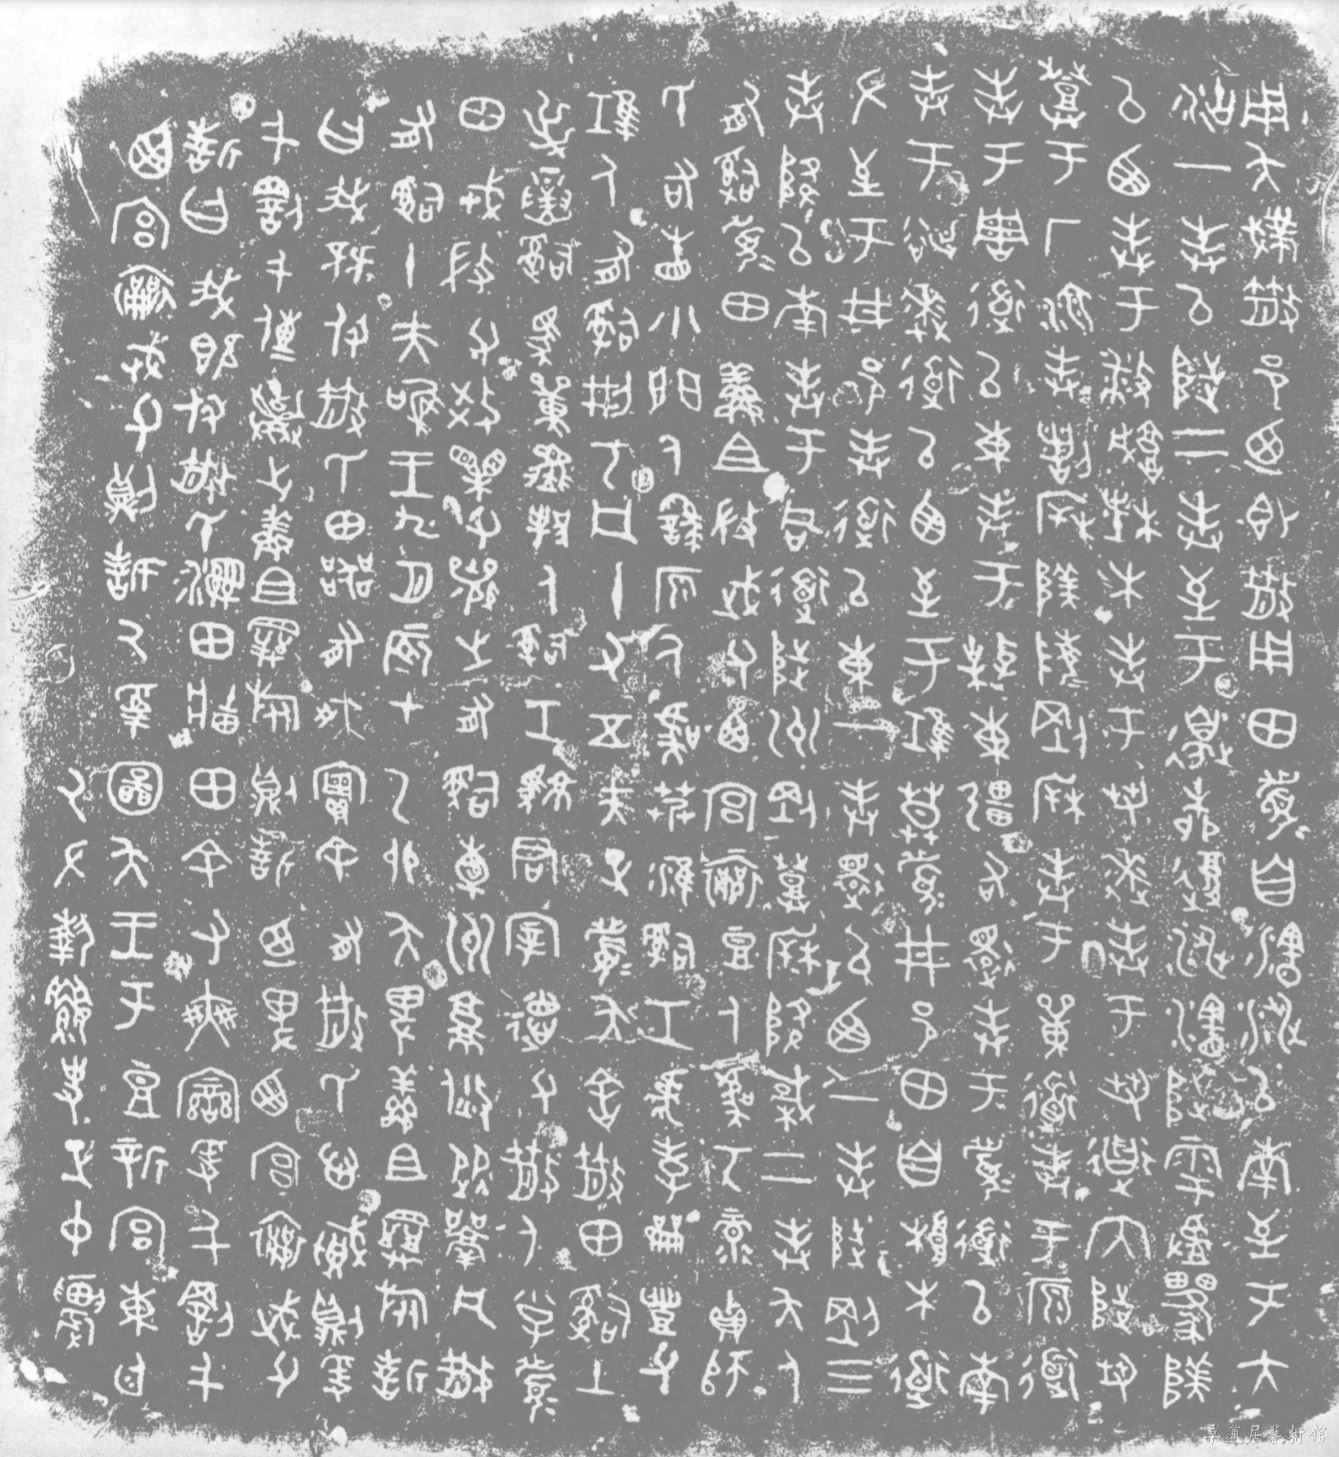 用夨𢦚散邑乃即散用田眉自瀗涉以南至于大
沽一封以陟二封至于邊柳復涉瀗陟雩𨽿
以西封于城木封于芻逨封于芻道內陟芻
登于厂湶封剛陵剛封于單道封于原道
封于周道以東封于東疆右還封于眉道以南
封于逨道以西至于鴻莫眉井邑田自根木道
左至于井邑封道以東一封還以西一封陟剛三
封降以南封于同道陟州剛登降棫二封夨人
有司眉田鮮且微武父西宮襄豆人虞丂彔貞師
氏右眚小門人繇原人虞艿淮司工虎孝豐父
鴻人有司刑丂凡十又五夫正眉夨舍散田司土
屰司馬單邦人司工君宰德父散人小子眉
田戎微父效父襄之有司橐州就焂從凡散
有司十夫唯王九月辰才乙卯夨卑鮮且旅誓
曰我既付散氏田器有爽實余有散氏心賊則爰
千罰千傳棄之鮮且旅則誓廼卑西宮襄武父
誓曰我既付散氏濕田牆田余又爽變爰千罰千
西宮襄武父則誓厥受圖夨王于豆新宮東廷
厥左執史正中農